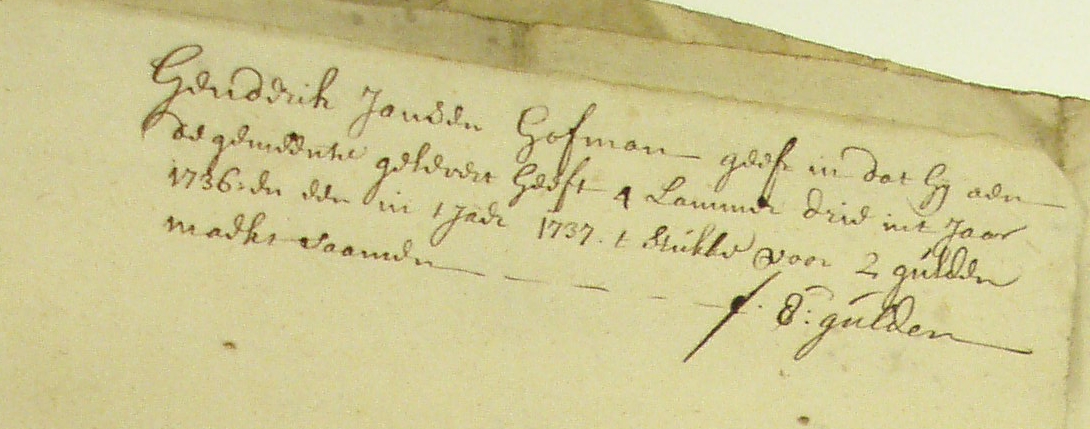 Henderik Jansen Hofman geeft in dat hij aen
de gemeente gelevert heeft 4 Lammer drie int Jaar
1736: en een in t Jaer 1737. t stukke voor 2 gulden
maekt saamen — — — — f. 8: gulden